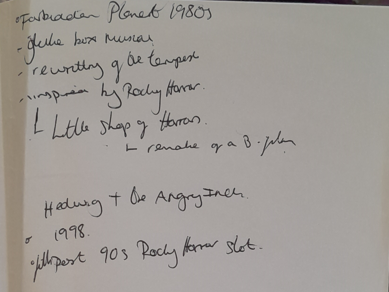 Forbidden Planet 1980s
- Juke box musical
- rewriting of the tempest
- inspired by Rocky Horror.
Little shop of Horrors.
remake of a B-
Hedwig + the Angry Inch.
1998.
90s Rocky Horror slot.